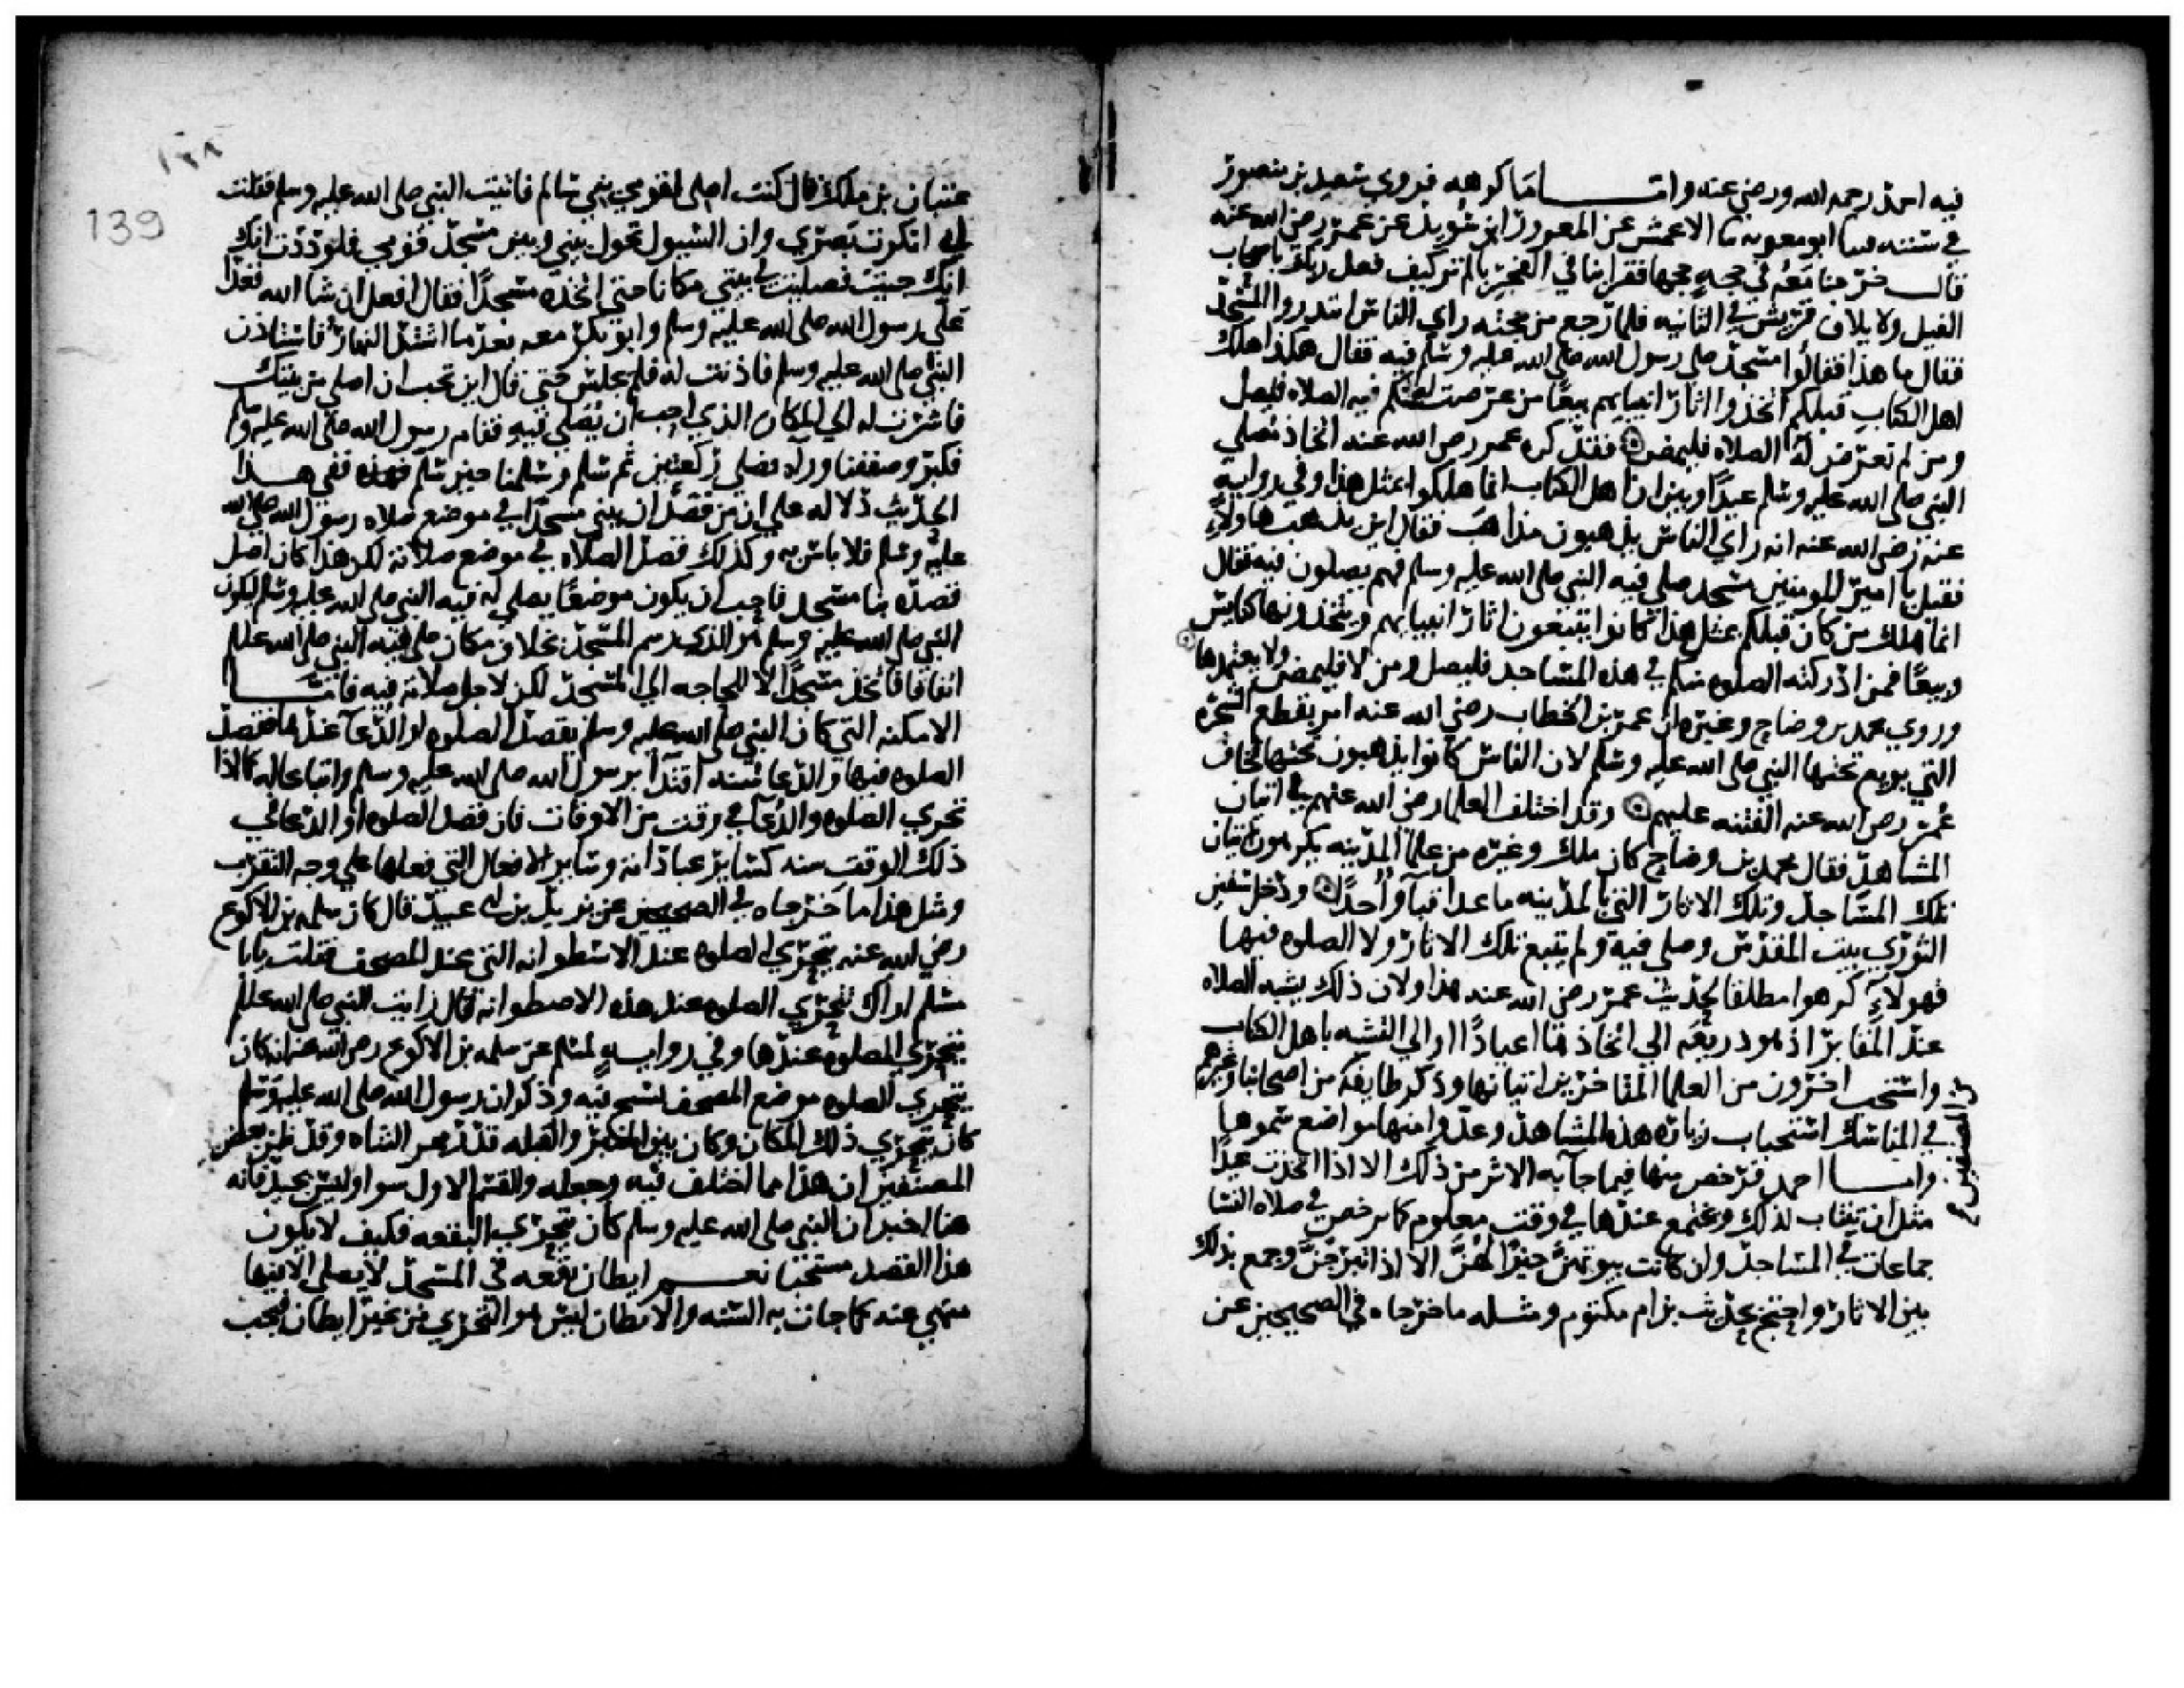 فيه احمد رحمه الله ورضي عنه وامـــــا ما كرهه فروي سعيد بن منصور
في سننه ثنا ابو معويه ثنا الاعمش عن المعرور ابن سويد عن عمر رضي الله عنه
قال خرجنا معه في حجه حجها فقرا بنا في الفجر بالم تر كيف فعل ربك باصحاب
الفيل ولايلاف قريش في الثانيه فلما رجع من حجته راي الناس ابتدروا المسجد
فقال ما هذا فقالوا مسجد صلي رسول الله صلى الله عليه وسلم فيه فقال هكذا هلك
اهل الكتاب قبلكم اتخذوا اثار انبيايهم بيعا من عرضت له منكم فيه الصلاه فليصل
ومن لم تعرض له الصلاه فليمض فقد كره عمر رضي الله عنه اتخاذ مصلي
النبي صلى الله عليه وسلم عيدا وبين ان اهل الكتاب انما هلكوا بمثل هذا وفي روايه
عنه رضي الله عنه انه راي الناس يذهبون مذاهب فقال اين يذهب هاولاء
فقيل يا امير المومنين مسجد صلي فيه النبي صلى الله عليه وسلم فهم يصلون فيه فقال
انما هلك من كان قبلكم بمثل هذا كانوا يتبعون اثار انبيايهم ويتخذونها كنايس
وبيعا فمن ادركته الصلوه منكم في هذه المساجد فليصل ومن لا فليمض ولا يعتمدها
وروي محمد بن وضاح وغيره ان عمر بن الخطاب رضي الله عنه امر بقطع الشجره
التي بويع تحتها النبي صلى الله عليه وسلم لان الناس كانوا يذهبون تحتها فخاف
عمر رضي الله عنه الفتنه عليهم وقد اختلف العلما رضي الله عنهم في اتيان
المشاهد فقال محمد بن وضاح كان ملك وغيره من علما المدينه يكرهون اتيان
تلك المساجد وتلك الاثار التي بالمدينه ما عدا قبا واحدا ودخل سفين
الثوري بيت المقدس وصلي فيه ولم يتبع تلك الاثار ولا الصلوه فيها
فهولاء كرهوا مطلقا لحديث عمر رضي الله عنه هذا ولان ذلك يشبه الصلاه
عند المقابر اذ هو ذريعه الي اتخاذها اعيادا او الي التشبه باهل الكتاب
واستحب اخرون من العلما المتاخرين اتيانها وذكر طايفه من اصحابنا وغيرهم
في المناسك استحباب زياره هذه المشاهد وعدوا منها مواضع سموها
وامـــا احمد فرخص منها فيما جا به الاثر من ذلك الا اذا اتخذت عيدا
مثل ان تنتاب لذلك ويجتمع عندها في وقت معلوم كما يرخص في صلاه النسا
جماعات في المساجد وان كانت بيوتهن خيرا لهن الا اذا تبرجن وجمع بذلك
بين الاثار واحتج بحديث بن ام مكتوم ومثله ما خرجاه في الصحيحين عن
139
عتبان بن ملك قال كنت اصلي لقومي بني سالم فاتيت النبي صلى الله عليه وسلم فقلت
اني انكرت بصري وان السيول تحول بيني وبين مسجد قومي فلوددت انك
انك جيت فصليت في بيتي مكانا حتي اتخذه مسجدا فقال افعل ان شا الله فغدا
علي رسول الله صلى الله عليه وسلم وابو بكر معه بعد ما اشتد النهار فاستاذن
النبي صلى الله عليه وسلم فاذنت له فلم يجلس حتي قال اين تحب ان اصلي من بيتك
فاشرت له الي المكان الذي احب ان يصلي فيه فقام رسول الله صلى الله عليه وسلم
فكبر وصففنا وراه فصلي ركعتين ثم سلم وسلمنا حين سلم ففي هـــذا
الحديث دلاله علي ان من قصد ان يبني مسجدا في موضع صلاه رسول الله صلى الله
عليه وسلم فلا باس به وكذلك قصد الصلاه في موضع صلاته لكن هذا كان اصل
قصده بنا مسجد فاحب ان يكون موضعا يصلي له فيه النبي صلى الله عليه وسلم ليكون
النبي صلى الله عليه وسلم هو الذي يرسم المسجد بخلاف مكان صلي فيه النبي صلى الله عليه وسلم
اتفاقا فاتخذ مسجدا لا لحاجه الي المسجد لكن لاجل صلاته فيه فامـــا
الامكنه التي كان النبي صلى الله عليه وسلم يقصد الصلوه او الدعا عندها فقصد
الصلوه فيها والدعا سنه اقتدا برسول الله صلى الله عليه وسلم واتباعا له كما اذا
تحري الصلوه والدعا في وقت من الاوقات فان قصد الصلوه او الدعا في
ذلك الوقت سنه كساير عباداته وساير الافعال التي فعلها علي وجه التقرب
ومثل هذا ما خرجاه في الصحيحين عن يزيد بن ابي عبيد قال كان سلمه بن الاكوع
رضي الله عنه يتحري الصلوه عند الاسطوانه التي عند المصحف فقلت يا با
مسلم اراك تتحري الصلوه عند هذه الاصطوانه قال رايت النبي صلى الله عليه وسلم
يتحري الصلوه عندها وفي روايه لمسلم عن سلمه بن الاكوع رضي الله عنه انه كان
يتحري الصلوه موضع المصحف يسبح فيه وذكر ان رسول الله صلى الله عليه وسلم
كان يتحري ذلك المكان وكان بين المنبر والقبله قدر ممر الشاه وقد ظن بعض
المصنفين ان هذا مما اختلف فيه وجعله والقسم الاول سوا وليس بجيد فانه
هنا اخبر ان النبي صلى الله عليه وسلم كان يتحري البقعه فكيف لا يكون
هذا القصد مستحبا نعـــم ايطان بقعه في المسجد لا يصلي الا فيها
منهي عنه كما جات به السنه والايطان ليس هو التحري من غير ايطان فيجب